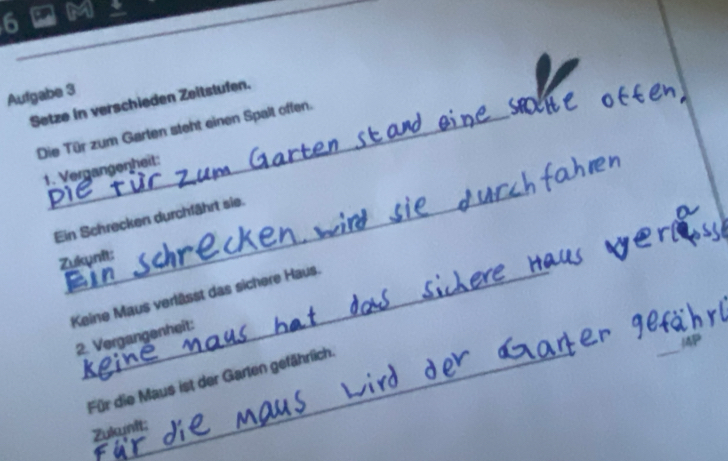 6
Aufgabe 3
Setze in verschieden Zeitstufen.
Die Tür zum Garten steht einen Spalt offen.
1. Vergangenheit:
Die Tür zum Garten stand eine spalte offen.
Ein Schrecken durchfährt sie.
Zukunft:
Ein schrecken wird sie durchfahren
Keine Maus verlässt das sichere Haus.
2. Vergangenheit:
keine maus hat das sichere Haus verlasse
Für die Maus ist der Garten gefährlich.
Zukunft:
Für die Maus wird der Garter gefährl
/4P